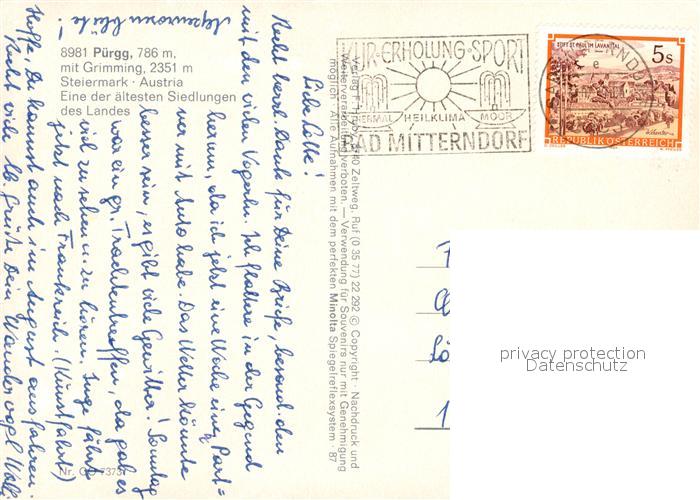 8981 Pürgg, 786 m,
mit Grimming, 2351 m
Steiermark · Austria
Eine der ältesten Siedlungen
des Landes
Nr. CO 7373
Verlag F. Hruby, 8740 Zeltweg, Ruf (0 35 77) 22 292 © Copyright · Nachdruck und
Weiterverarbeitung verboten. — Verwendung für Souvenirs nur mit Genehmigung
möglich · Alle Aufnahmen mit dem perfekten Minolta Spiegelreflexsystem · 87
KUR·ERHOLUNG·SPORT
THERMAL HEILKLIMA MOOR
BAD MITTERNDORF
STIFT ST. PAUL IM LAVANTTAL
5 S
REPUBLIK ÖSTERREICH
Liebe Lilli!
Recht herzl. Dank für Deine Briefe, besond. den
mit den vielen Vogerln. Ich flattere in der Gegend
herum, da ich jetzt eine Woche einen Part=
ner mit Auto habe. Das Wetter könnte
besser sein, es gibt viele Gewitter! Sonntag
war ein gr. Trachtentreffen, da gab es
viel zu sehen u. zu hören. Inge fährt
jetzt nach Frankreich. (Kunstfahrt)
Hoffe, Du kannst auch im August ausfahren.
Recht viele lb. Grüße Dein Wandervogl
Alpenrosenblüte!
privacy protection
Datenschutz